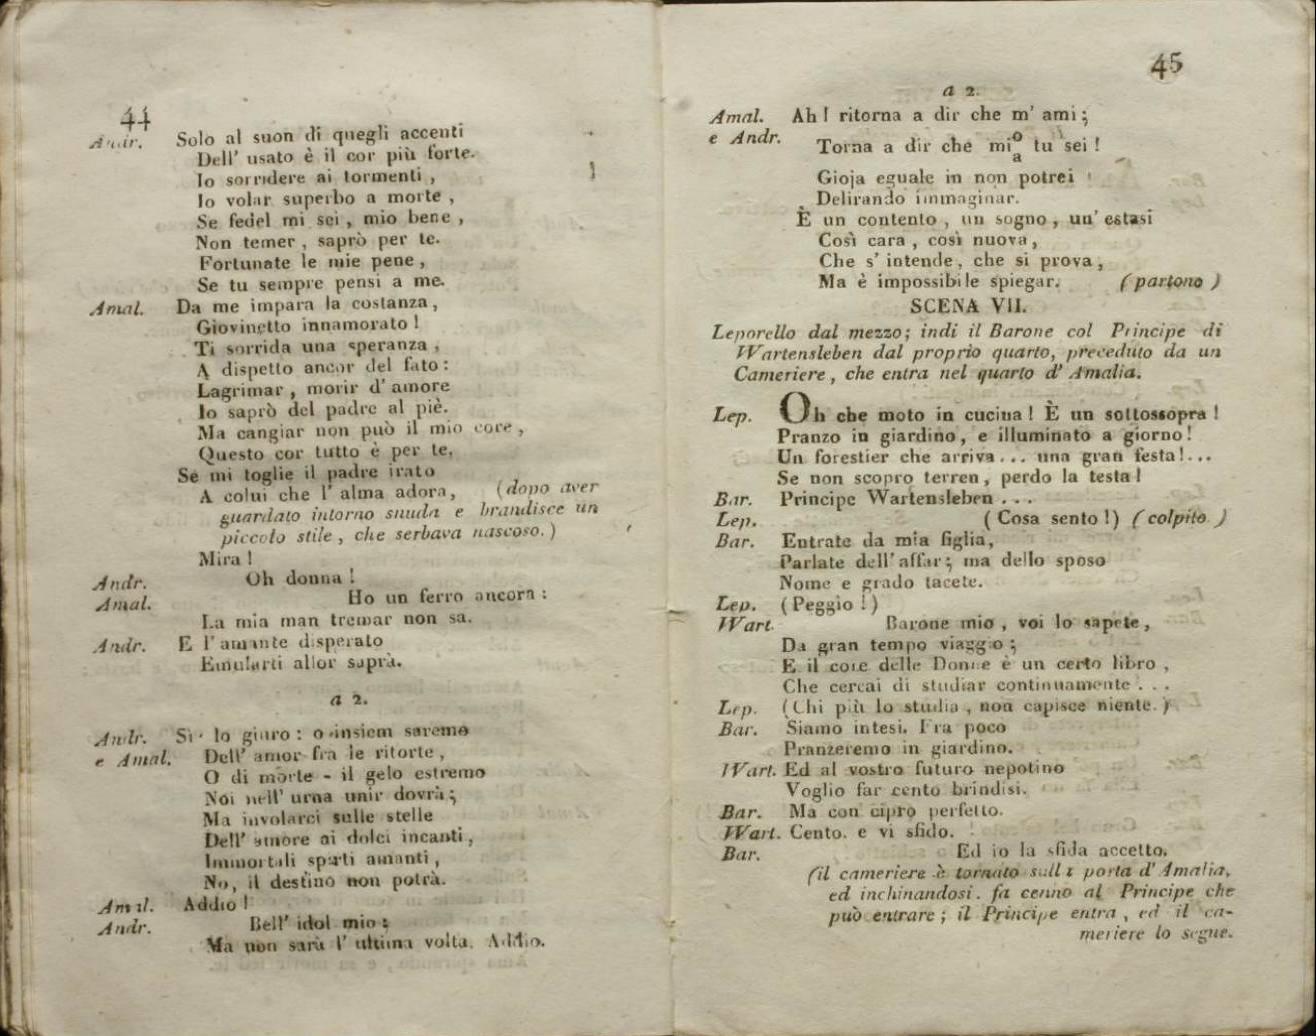 44
Andr. Solo al suon di quegli accenti
Dell' usato è il cor più forte.
Io sorridere ai tormenti,
Io volar superbo a morte,
Se fedel mi sei, mio bene,
Non temer, saprò per te.
Fortunate le mie pene,
Se tu sempre pensi a me.
Amal. Da me impara la costanza,
Giovinetto innamorato!
Ti sorrida una speranza,
A dispetto ancor del fato:
Lagrimar, morir d' amore
Io saprò del padre al piè.
Ma cangiar non può il mio core,
Questo cor tutto è per te,
Se mi toglie il padre irato
A colui che l' alma adora, (dopo aver
guardato intorno snuda e brandisce un
piccolo stile, che serbava nascoso.)
Mira!
Andr. Oh donna!
Amal. Ho un ferro ancora:
La mia man tremar non sa.
Andr. E l' amante disperato
Emularti allor saprà.
a 2.
Andr. Sì lo giuro: o insiem saremo
e Amal. Dell' amor fra le ritorte,
O di morte - il gelo estremo
Noi nell' urna unir dovrà;
Ma involarci sulle stelle
Dell' amore ai dolci incanti,
Immortali spirti amanti,
No, il destino non potrà.
Amal. Addio!
Andr. Bell' idol mio:
Ma non sarà l' ultima volta. Addio.
45
a 2.
Amal. Ah! ritorna a dir che m' ami;
e Andr. Torna a dir che mi o/a tu sei!
Gioja eguale in non potrei
Delirando immaginar.
È un contento, un sogno, un' estasi
Così cara, così nuova,
Che s' intende, che si prova,
Ma è impossibile spiegar. (partono)
SCENA VII.
Leporello dal mezzo; indi il Barone col Principe di
Wartensleben dal proprio quarto, preceduto da un
Cameriere, che entra nel quarto d' Amalia.
Lep. Oh che moto in cucina! È un sottossopra!
Pranzo in giardino, e illuminato a giorno!
Un forestier che arriva... una gran festa!...
Se non scopro terren, perdo la testa!
Bar. Principe Wartensleben...
Lep. (Cosa sento!) (colpito)
Bar. Entrate da mia figlia,
Parlate dell' affar; ma dello sposo
Nome e grado tacete.
Lep. (Peggio!)
Wart. Barone mio, voi lo sapete,
Da gran tempo viaggio;
E il core delle Donne è un certo libro,
Che cercai di studiar continuamente...
Lep. (Chi più lo studia, non capisce niente.)
Bar. Siamo intesi. Fra poco
Pranzeremo in giardino.
Wart. Ed al vostro futuro nepotino
Voglio far cento brindisi.
Bar. Ma con cipro perfetto.
Wart. Cento. e vi sfido.
Bar. Ed io la sfida accetto.
(il cameriere è tornato sulla porta d' Amalia,
ed inchinandosi. fa cenno al Principe che
può entrare; il Principe entra, ed il ca-
meriere lo segue.